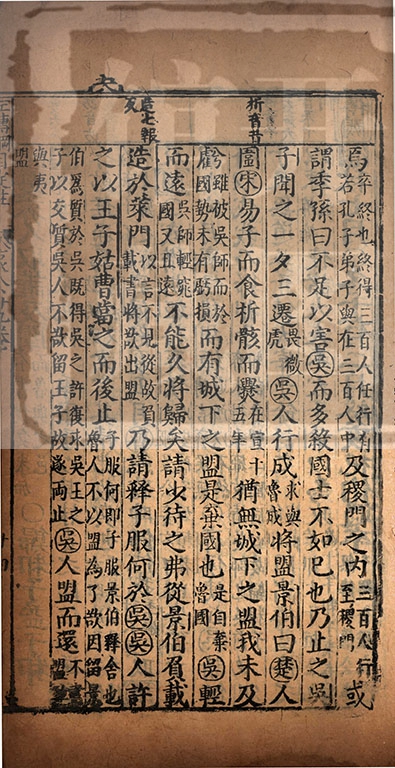 析音昔
造七報
反
焉卒終也終得三百人任行有若孔子弟子與在三百人中及稷門之内三百人行至稷門或
謂季孫曰不足以害吳而多殺國士不如已也乃止之吳
子聞之一夕三遷畏微虎吳人行成求與魯成將盟景伯曰楚人
圍宋易子而食析骸而爨在宣十五年猶無城下之盟我未及
虧雖被吳師而於國勢未有虧損而有城下之盟是棄國也是自棄魯國吳輕
而遠吳師輕窕國又且遠不能久將歸矣請少待之弗從景伯負載
造於萊門以言不見從故負載書將欲出盟乃請釋子服何於吳吳人許
之以王子姑曹當之而後止子服何即子服景伯釋舍也魯人不以盟為了欲因留景
伯爲質於吳既得吳之許復求吳王之子以交質吳人不欲留王子故遂兩止吳人盟而還不書盟
與夷
盟